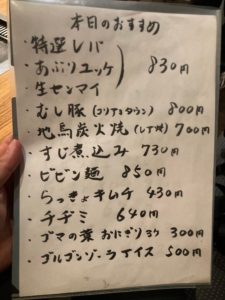 本日のおすすめ
・特選レバ
・あぶりユッケ 830円
・生センマイ
・むし豚(コリアンタウン) 800円
・地鳥炭火焼(レア状) 700円
・すじ煮込み 730円
・ビビン麺 850円
・らっきょキムチ 430円
・チヂミ 640円
・ゴマの葉おにぎり 300円
・ゴルゴンゾーラアイス 500円